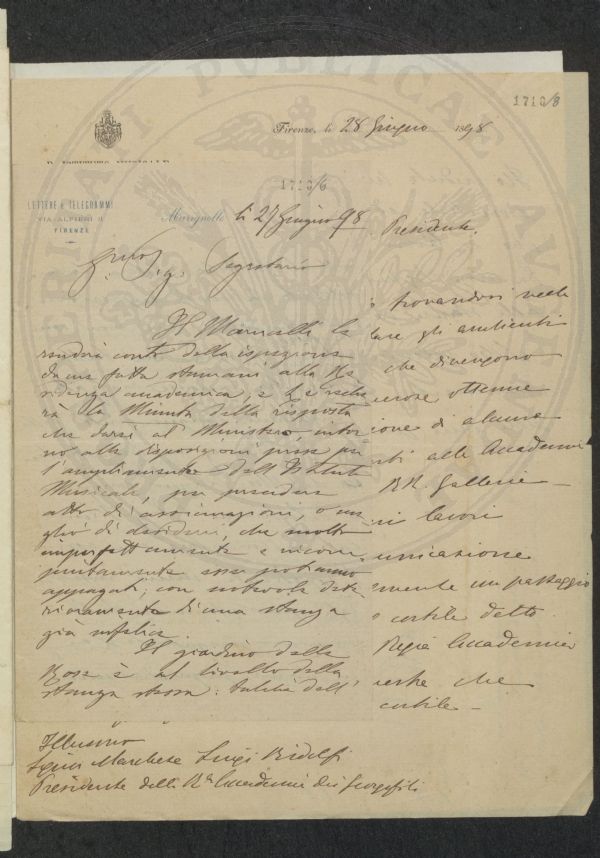 1710/8
Firenze, li 28 Giugno 1898
1710/6
LETTERE E TELEGRAMMI
VIA ALFIERI 9
FIRENZE
Marignolle li 27 Giugno 98
Presidente.
Segretario
Il Marucelli le
renderà conto della ispezione
da me fatta stamani alla Re
sidenza accademica, e Le reche
rà la Minuta della risposta
che darsi al Ministero, intor
no alle disposizioni prese per
l'ampliamento dell'Istituto
Musicale, per prendere
atto di assicurazioni, o me
glio di desideri, che molto
imperfettamente e incom
piutamente essi potranno
appagati, con notevole dete
rioramento di una stanza
già infelice.
Il giardino delle
Rose è al livello della
stanza stessa: talché dell'
trovandosi nelle
lare gli ambienti
che divengono
ottenne
ione di alcune
alle Accademi
RR. Gallerie
lavori
unicazione
mente un passaggio
cortile detto
Regia Accademia
che
cortile
Illusmo
Signor Marchese Luigi Ridolfi
Presidente della Ra Accademia dei Georgofili